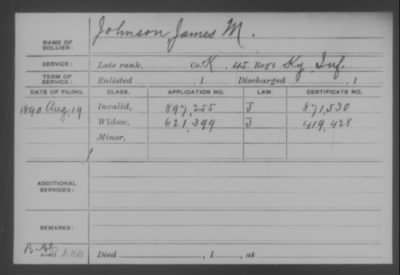 NAME OF SOLDIER: Johnson, James M.
SERVICE: Late rank, Co. K, 45 Reg't Ky. Inf.
TERM OF SERVICE: Enlisted , 1 Discharged , 1
DATE OF FILING. CLASS. APPLICATION NO. LAW. CERTIFICATE NO.
1890 Aug. 19 Invalid, 897,255 J 871,530
Widow, 621,399 J 419,428
Minor,
ADDITIONAL SERVICES:
REMARKS:
Died , 1 , at